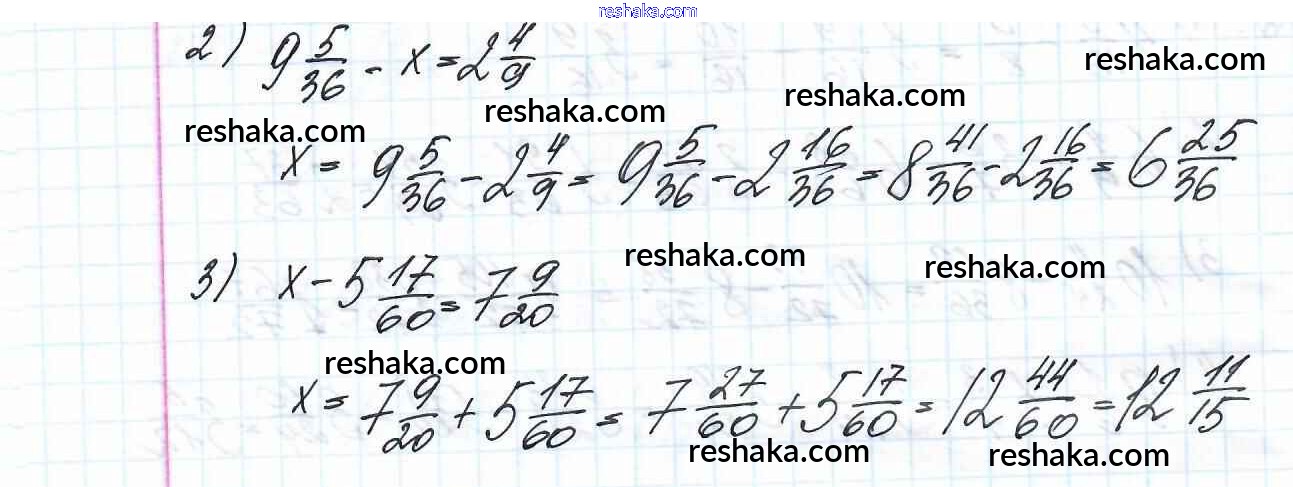 reshaka.com
2) 9 5/36 - x = 2 4/9
reshaka.com
reshaka.com
reshaka.com
reshaka.com
x = 9 5/36 - 2 4/9 = 9 5/36 - 2 16/36 = 8 41/36 - 2 16/36 = 6 25/36
reshaka.com
reshaka.com
3) x - 5 17/60 = 7 9/20
reshaka.com
x = 7 9/20 + 5 17/60 = 7 27/60 + 5 17/60 = 12 44/60 = 12 11/15
reshaka.com
reshaka.com